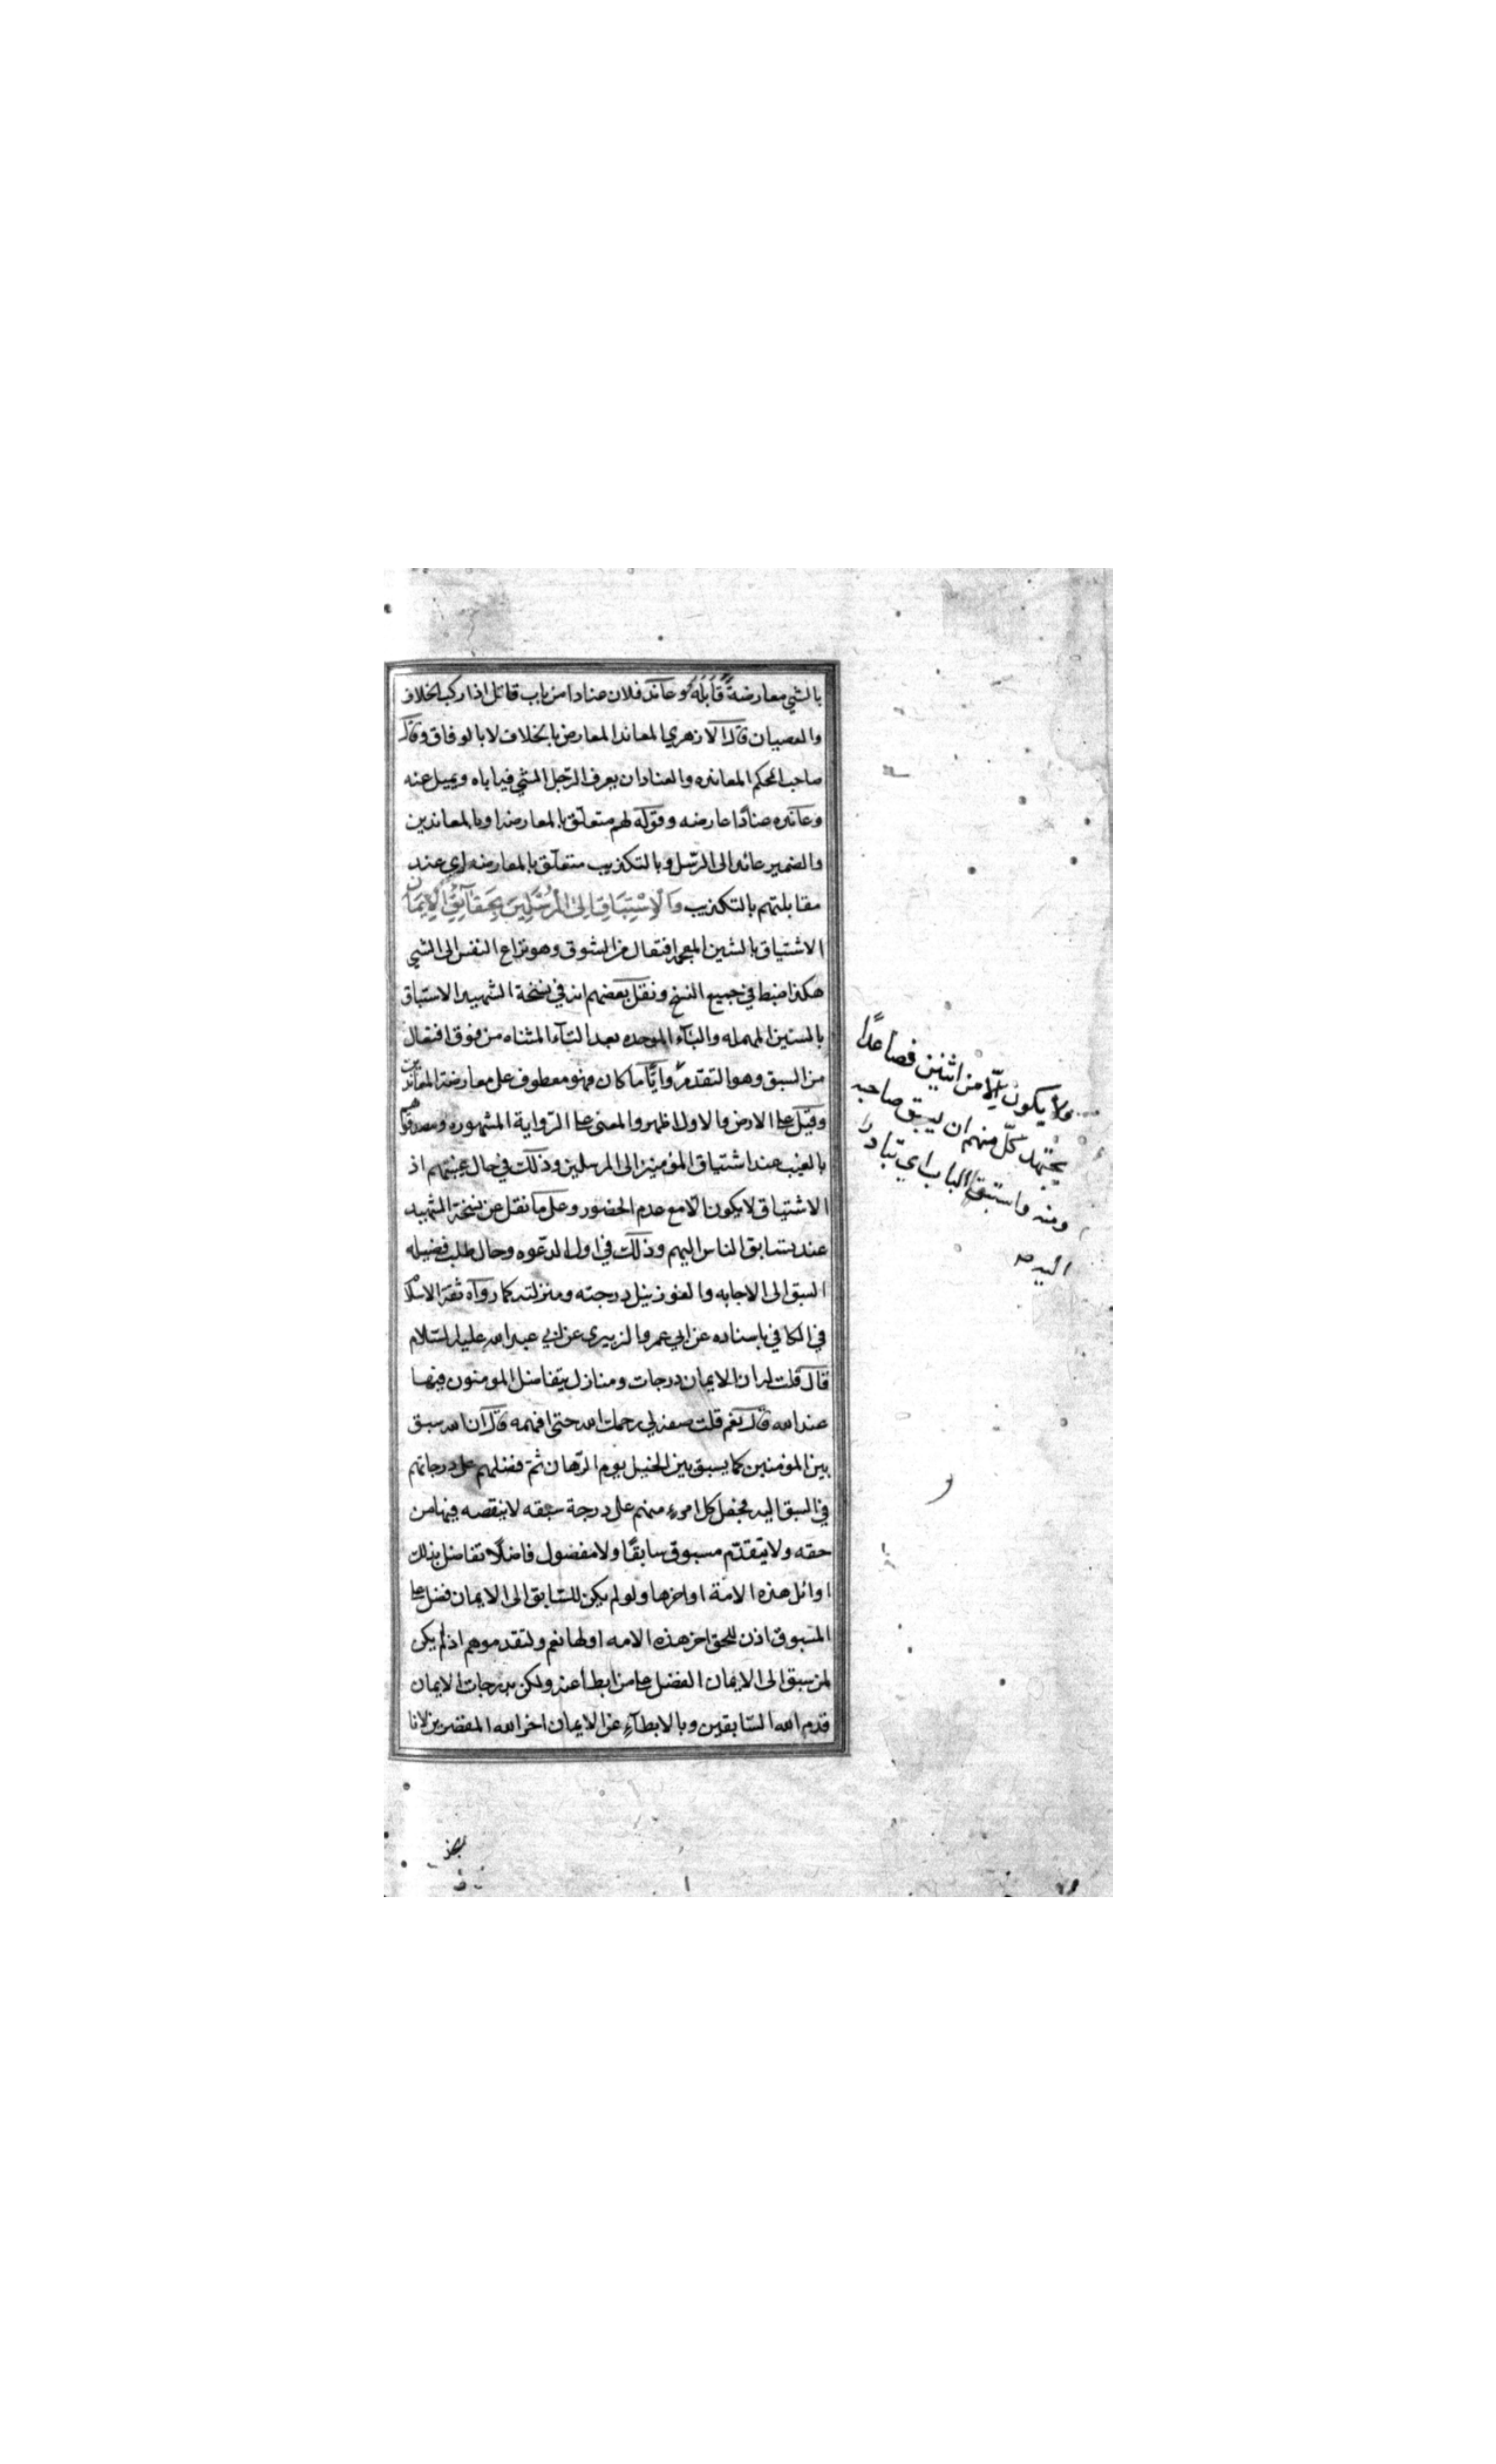 بالشي معارضةً قَابَلَهُ وعاند فلان عنادا من باب قاتل اذا ركب الخلاف
والعصيان قال الازهري المعاند المعارض بالخلاف لا بالوفاق وقال
صاحب المحكم المعانده والعناد ان يعرف الرّجل الشي فياباه ويميل عنه
وعانده عنادًا عارضه وقوله لهم متعلّق بالمعارضه او بالمعاندين
والضمير عائد الى الرّسل وبالتكذيب متعلّق بالمعارضه اي عند
مقابلتهم بالتكذيب وَالْاِشْتِيَاقِ اِلَى الْمُرْسَلِينَ بِحَقَآئِقِ الْاِيمَانِ
الاشتياق بالشين المعجمه افتعال من الشوق وهو نزاع النفس الى الشي
هكذا ضبط في جميع النسخ ونقل بعضهم انه في نسخة الشهيد الاستباق
بالسّين المهمله والبآء الموحده بعد التآء المثناه من فوق افتعال
من السبق وهو التقدم وايًّا ما كان فهو معطوف على معارضة المعاندين
وقيل على الارض والاول اظهر والمعنى على الرّواية المشهوره ومصدقوهم
بالغيب عند اشتياق المؤمنين الى المرسلين وذلك في حال غيبتهم اذ
الاشتياق لا يكون الّا مع عدم الحضور وعلى ما نقل عن نسخة الشهيد
عند تسابق الناس اليهم وذلك في اول الدعوه وحال طلب فضيله
السبق الى الاجابه والفوز بنيل درجته ومنزلته كما رواه ثقة الاسلام
في الكافي باسناده عن ابي عمرو الزبيري عن ابي عبد الله عليه السّلام
قال قلت له ان الايمان درجات ومنازل يتفاضل المومنون فيها
عند الله قال نعم قلت صفه لي رحمك الله حتى افهمه قال ان الله سبق
بين المؤمنين كما يسبق بين الخيل يوم الرّهان ثمّ فضلهم على درجاتهم
في السبق اليه فجعل كل امرء منهم على درجة سبقه لا ينقصه فيها من
حقه ولا يتقدّم مسبوق سابقًا ولا مفضول فاضلًا تفاضل بذلك
اوائل هذه الامة اواخرها ولو لم يكن للسّابق الى الايمان فضل على
المسبوق اذن للحق اخر هذه الامه اولها نعم ولتقدموهم اذ لم يكن
لمن سبق الى الايمان الفضل على من ابطأ عنه ولكن بدرجات الايمان
قدم الله السّابقين وبالابطآء عن الايمان اخر الله المقصرين لانا
ولا يكون الّا من اثنين فصاعدًا
يجتهد كلّ منهم ان يسبق صاحبه
ومنه واستبقا الباب اي تبادرا
اليه